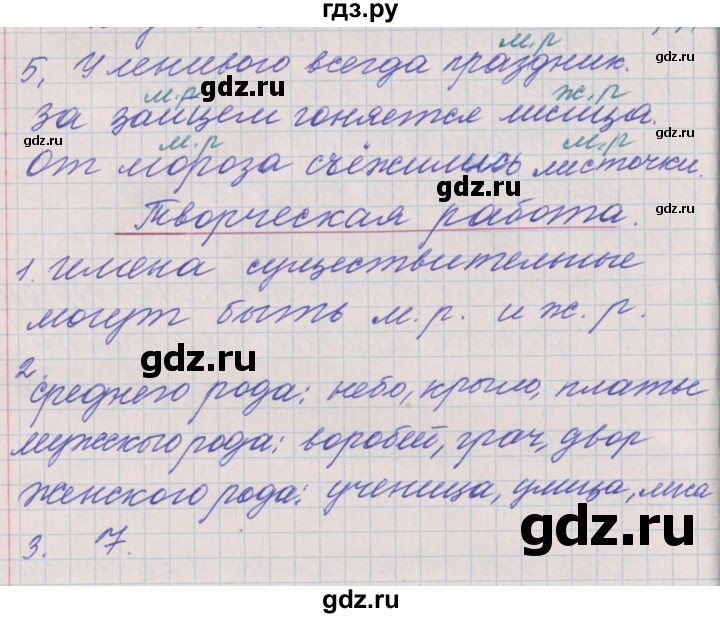 гдз.ру
м.р
5, У ленивого всегда праздник.
gdz.ru
gdz.ru
м.р ж.р
За зайцем гоняется лисица.
gdz.ru
м.р м.р
От мороза съёжились листочки.
gdz.ru
gdz.ru
Творческая работа.
1. Имена существительные
могут быть м.р. и ж.р.
gdz.ru
2.
Среднего рода: небо, крыло, платье
мужского рода: воробей, грач, двор
женского рода: ученица, улица, лиса
gdz.ru
3. 7.
gdz.ru